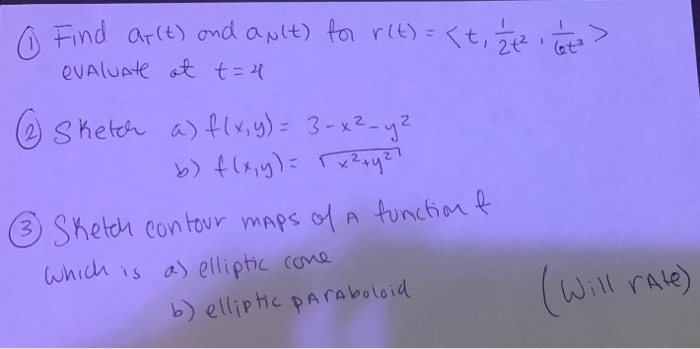 ① Find a_T(t) and a_N(t) for r(t) = <t, 1/2t², 1/6t³>
EVALUATE at t=4
② Sketch a) f(x,y) = 3-x²-y²
b) f(x,y) = √x²+y²
③ Sketch contour MAPS of A function f
Which is a) elliptic cone
b) elliptic PARAboloid
(Will rAte)